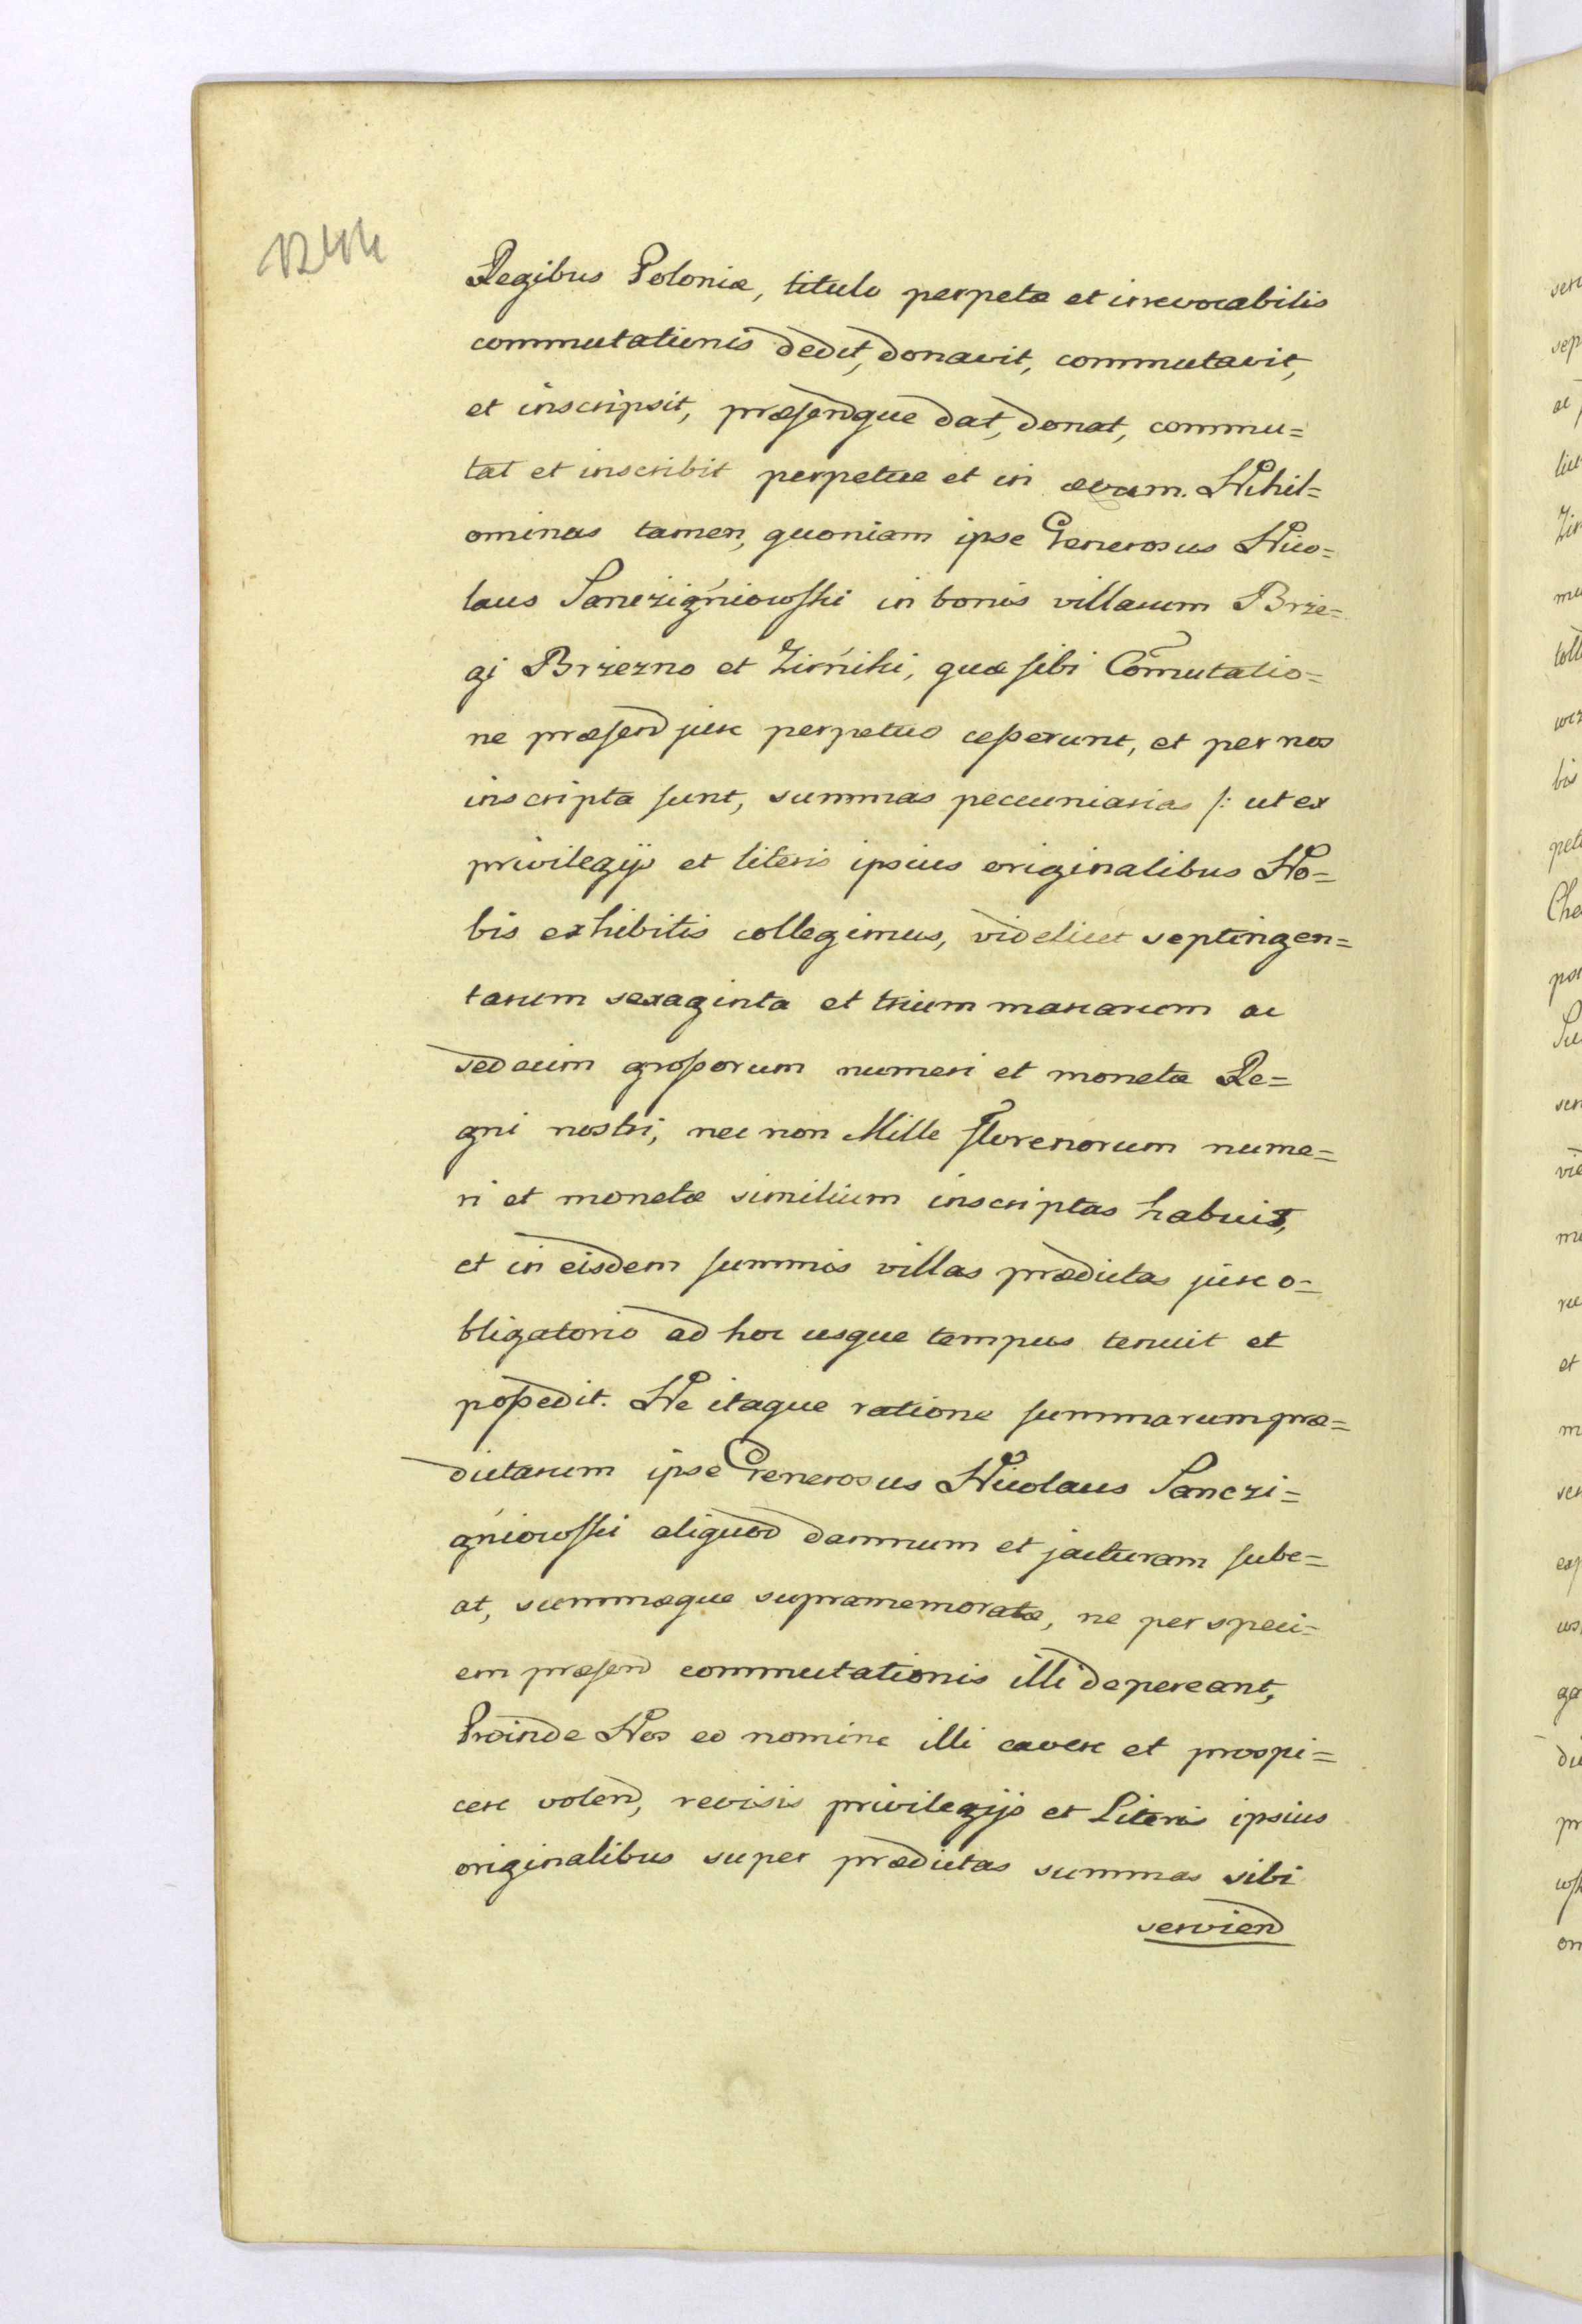 1244
Regibus Poloniæ, titulo perpetæ et irrevocabilis
commutationis dedit, donavit, commutavit,
et inscripsit, præsendque dat, donat, commu=
tat et inscribit perpetue et in ævum. Nihil=
ominus tamen, quoniam ipse Generosus Nico=
laus Sanczigniowski in bonis villarum Brze=
gi Brzezno et Zirniki, quæ sibi Com̃utatio=
ne præsend jure perpetuo cesserunt, et per nos
inscripta sunt, summas pecuniarias /: ut ex
privilegijs et literis ipsius originalibus No=
bis exhibitis collegimus, videlicet septingen=
tarum sexaginta et trium marcarum ac
sedecim grossorum numeri et monetæ Re=
gni nostri, nec non Mille florenorum nume=
ri et monetæ similium inscriptas habuit,
et in eisdem summis villas prædictas jure o=
bligatorio ad hoc usque tempus tenuit et
possedit. Ne itaque ratione summarum præ=
dictarum ipse Generosus Nicolaus Sanczi=
gniowski aliquod damnum et jacturam sube=
at, summæque supramemoratæ, ne per speci=
em præsend commutationis illi depereant,
Proinde Nos eo nomine illi cavere et prospi=
cere volend, revisis privilegijs et Literis ipsius
originalibus super prædictas summas sibi
serviend